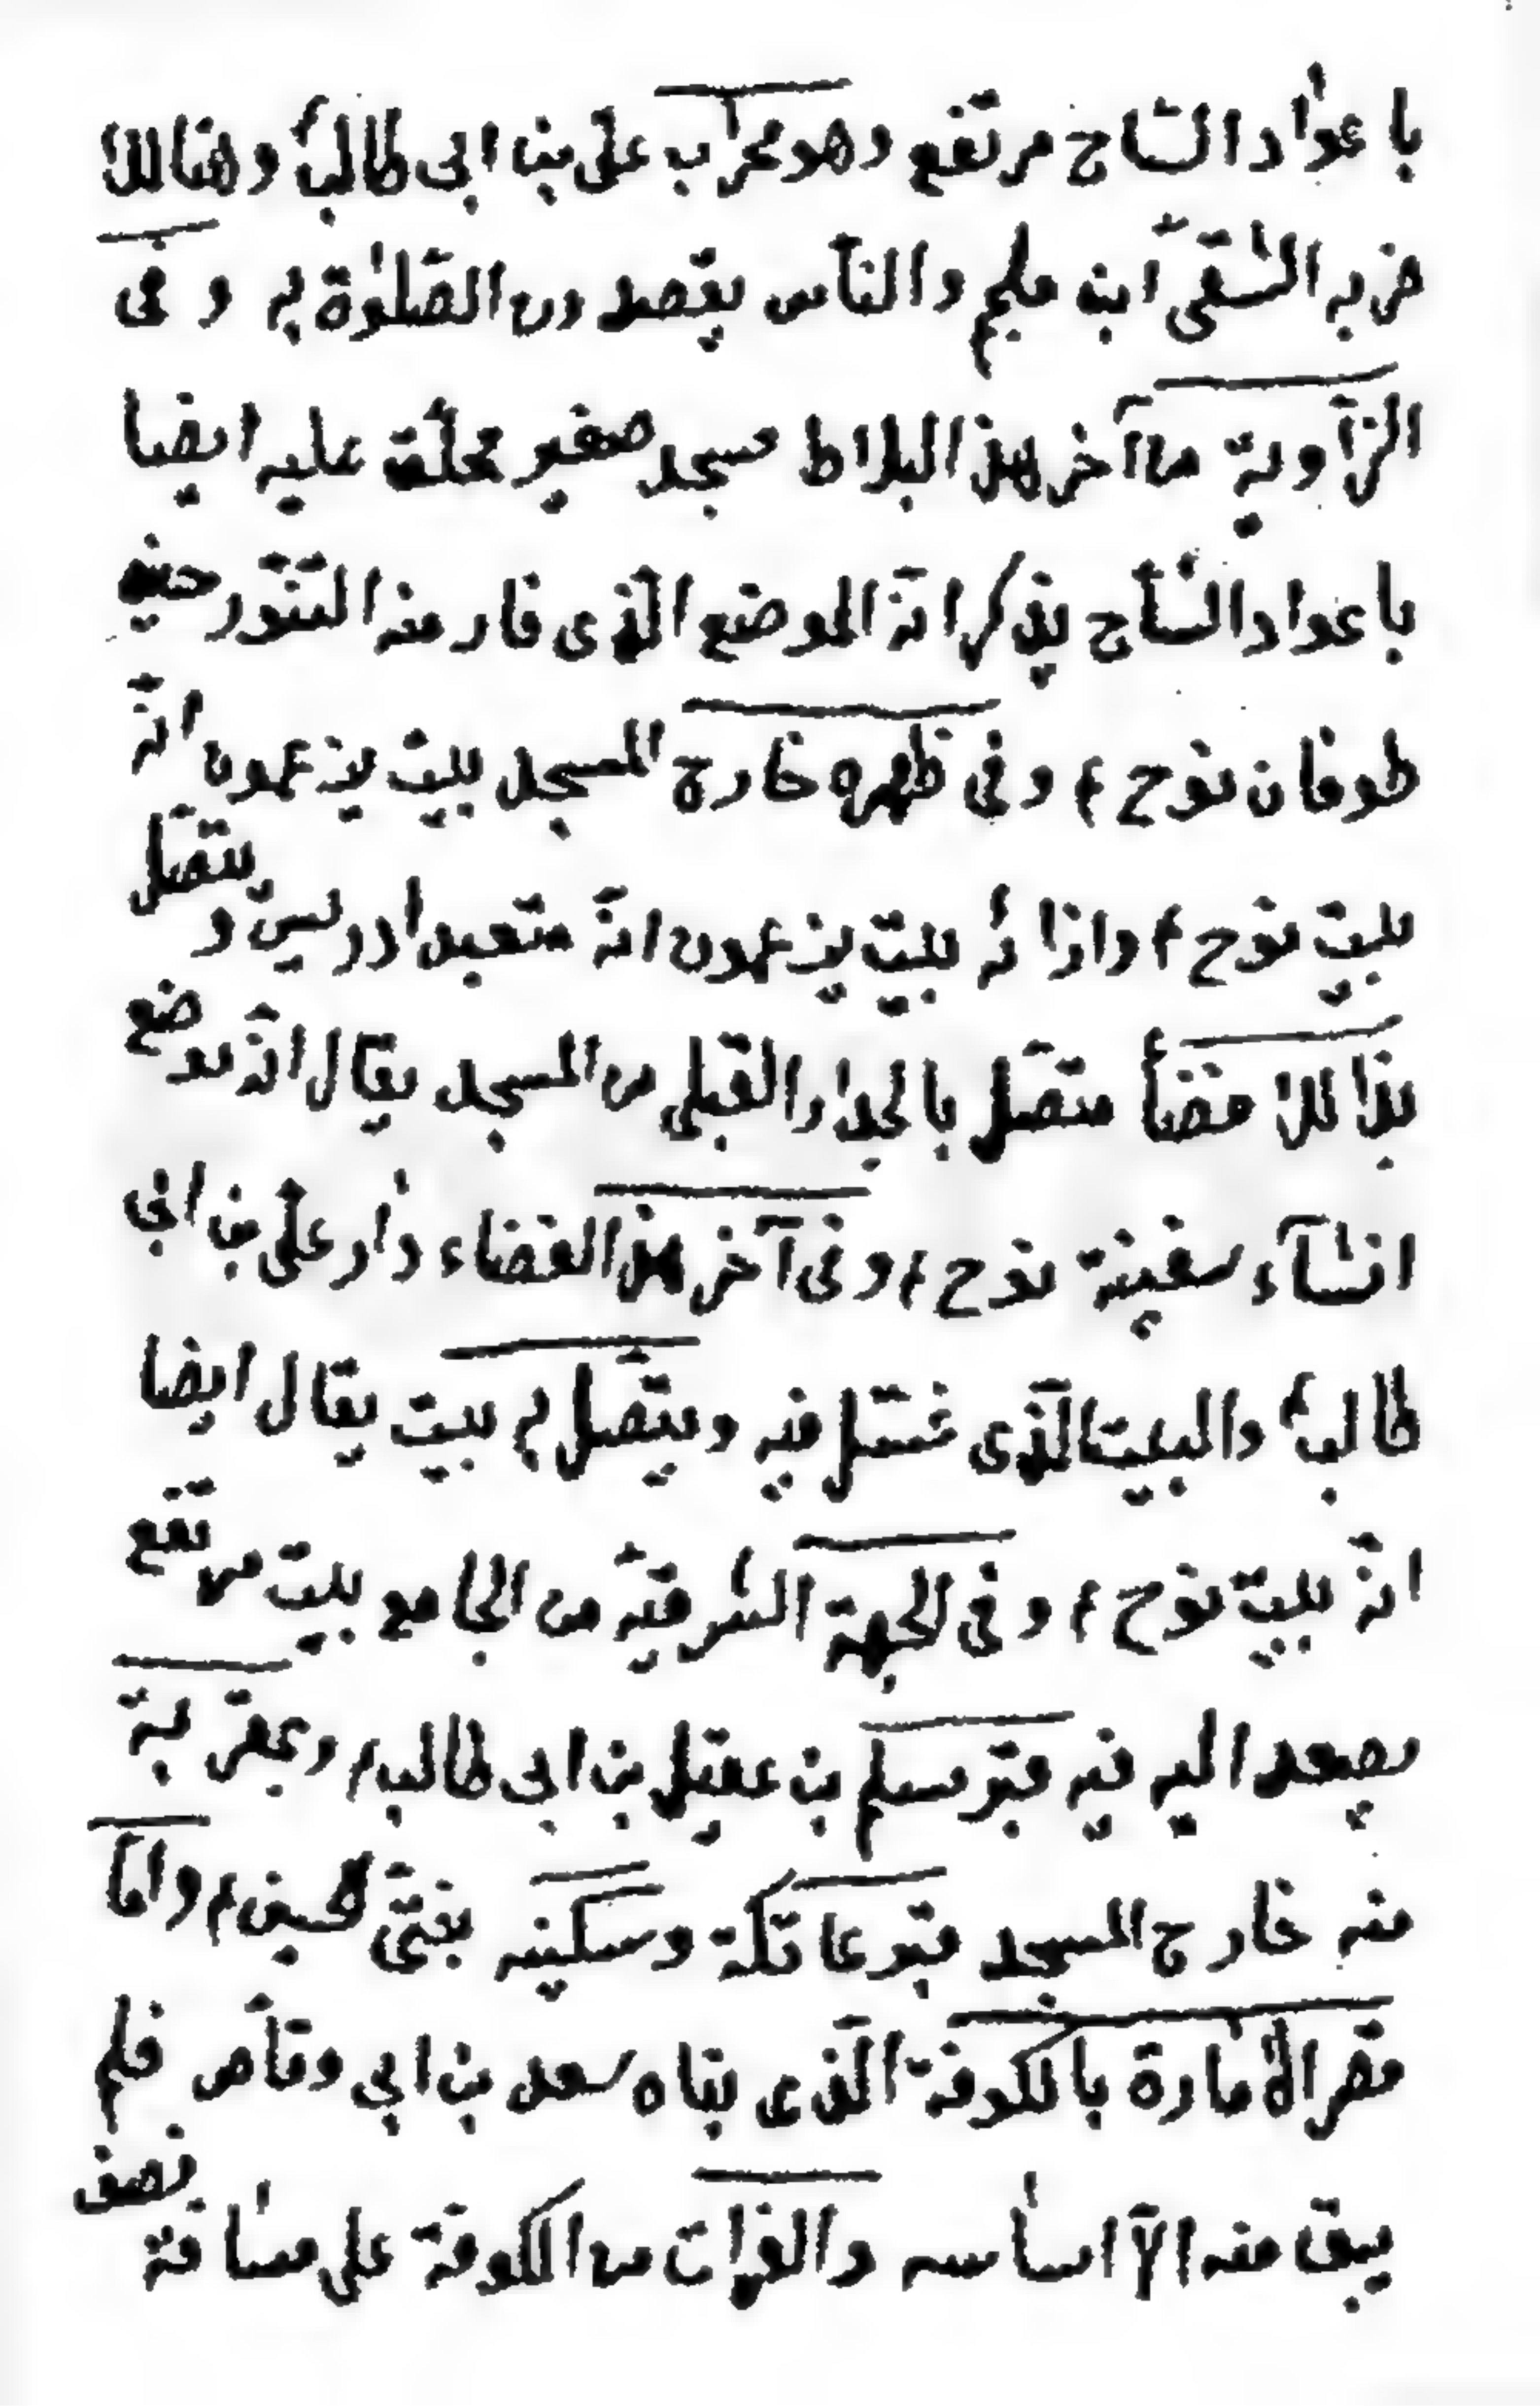 باعواد الساج مرتفع وهو محراب على بن ابى طالبؑ وهنالك
ضربه الشقىّ ابن ملجم والنّاس يقصدون الصّلوٰة به وفى
الزّاوية من آخر هذا البلاط مسجد صغير محلّق عليه ايضا
باعواد السّاج يذكر انّه الموضع الّذى فار منه التنّور حين
طوفان نوح ۴ وفى ظهره خارج المسجد بيت يزعمون انّه
بيت نوح ۴ وازائه بيت يزعمون انّه متعبد ادريس ويتّصل
بذالك فضأ متّصل بالجدار القبلى من المسجد يقال انّه موضع
انشآء سفينة نوح ۴ وفى آخر هذا الفضاء دار علىّ بن ابى
طالبؑ والبيت الّذى غسّل فيه ويتّصل به بيت يقال ايضا
انّه بيت نوح ۴ وفى الجهة الشّرقيّة من الجامع بيت مرتفع
يصعد اليه فيه قبر مسلم بن عقيل بن ابى طالبؑ وبمقربة
منه خارج المسجد قبر عاتكة وسكينه بنتى الحسين ۴ وامّا
قصر الامارة بالكوفة الّذى بناه سعد بن ابى وقّاص فلم
يبق منه الاّ اساسه والفرات من الكوفة على مسافة نصف